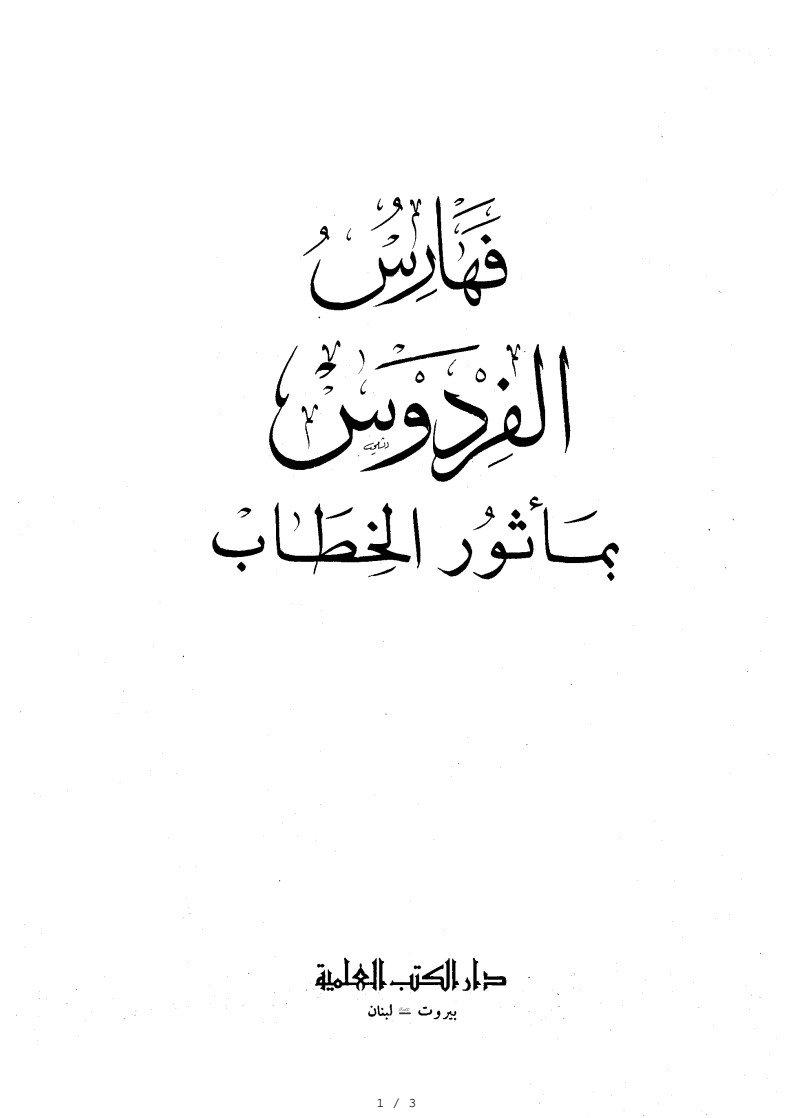 فَهَارِسُ
الفِرْدَوْسْ
بمَأثُور الخِطَاب
دار الكتب العلمية
بيروت ـ لبنان
1 / 3